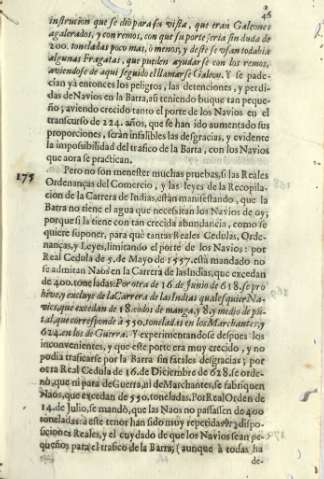 46
instruccion que se dió para su visita, que eran Galeones
agalerados, y con remos, con que su porte seria sin duda de
200. toneladas poco mas, ò menos, y deste se usan todabia
algunas Fragatas, que pueden ayudarse con los remos,
aviendose de aqui seguido el llamarse Galeon. Y se pade-
cian yà entonces los peligros, las detenciones, y perdi-
das de Navios en la Barra, aũ teniendo buque tan peque-
ño; aviendo crecido tanto el porte de los Navios en el
transcurso de 224. años, que se han ido aumentado sus
proporciones, serán infalibles las desgracias, y evidente
la impossibilidad del trafico de la Barra, con los Navios
que aora se practican.
175 Pero no son menester muchas pruebas, si las Reales
Ordenanças del Comercio, y las leyes de la Recopila-
cion de la Carrera de Indias, están manifestando, que la
Barra no tiene el agua que necessitan los Navios de oy;
porque si la tiene con tan crecida abundancia, como se
quiere suponer, para què tantas Reales Cedulas, Orde-
nanças, y Leyes, limitando el porte de los Navios: por
Real Cedula de 5. de Mayo de 1557. está mandado no
se admitan Naos en la Carrera de las Indias, que excedan
de 400. toneladas: Por otra de 16 de Junio de 618. se pro
hive, y excluye de la Carrera de las Indias qualesquier Na-
vios, que excedan de 18. codos de manga, y 8. y medio de pũ-
tal, que corresponde à 550. toneladas en los Marchantes, y
624. en los de Guerra. Y experimentandose despues los
inconvenientes, y que este porte era muy crecido, y no
podia traficarse por la Barra sin fatales desgracias; por
otra Real Cedula de 16. de Diciembre de 628. se orde-
nò, que ni para de Guerra, ni de Marchantes, se fabriquen
Naos, que excedan de 550. toneladas. Por Real Orden de
14. de Julio, se mandò, que las Naos no passassen de 400
toneladas: à este tenor han sido muy repetidas las dispo-
siciones Reales, y el cuydado de que los Navios sean pe-
queños para el trafico de la Barra; (aunque à todas ha
de-